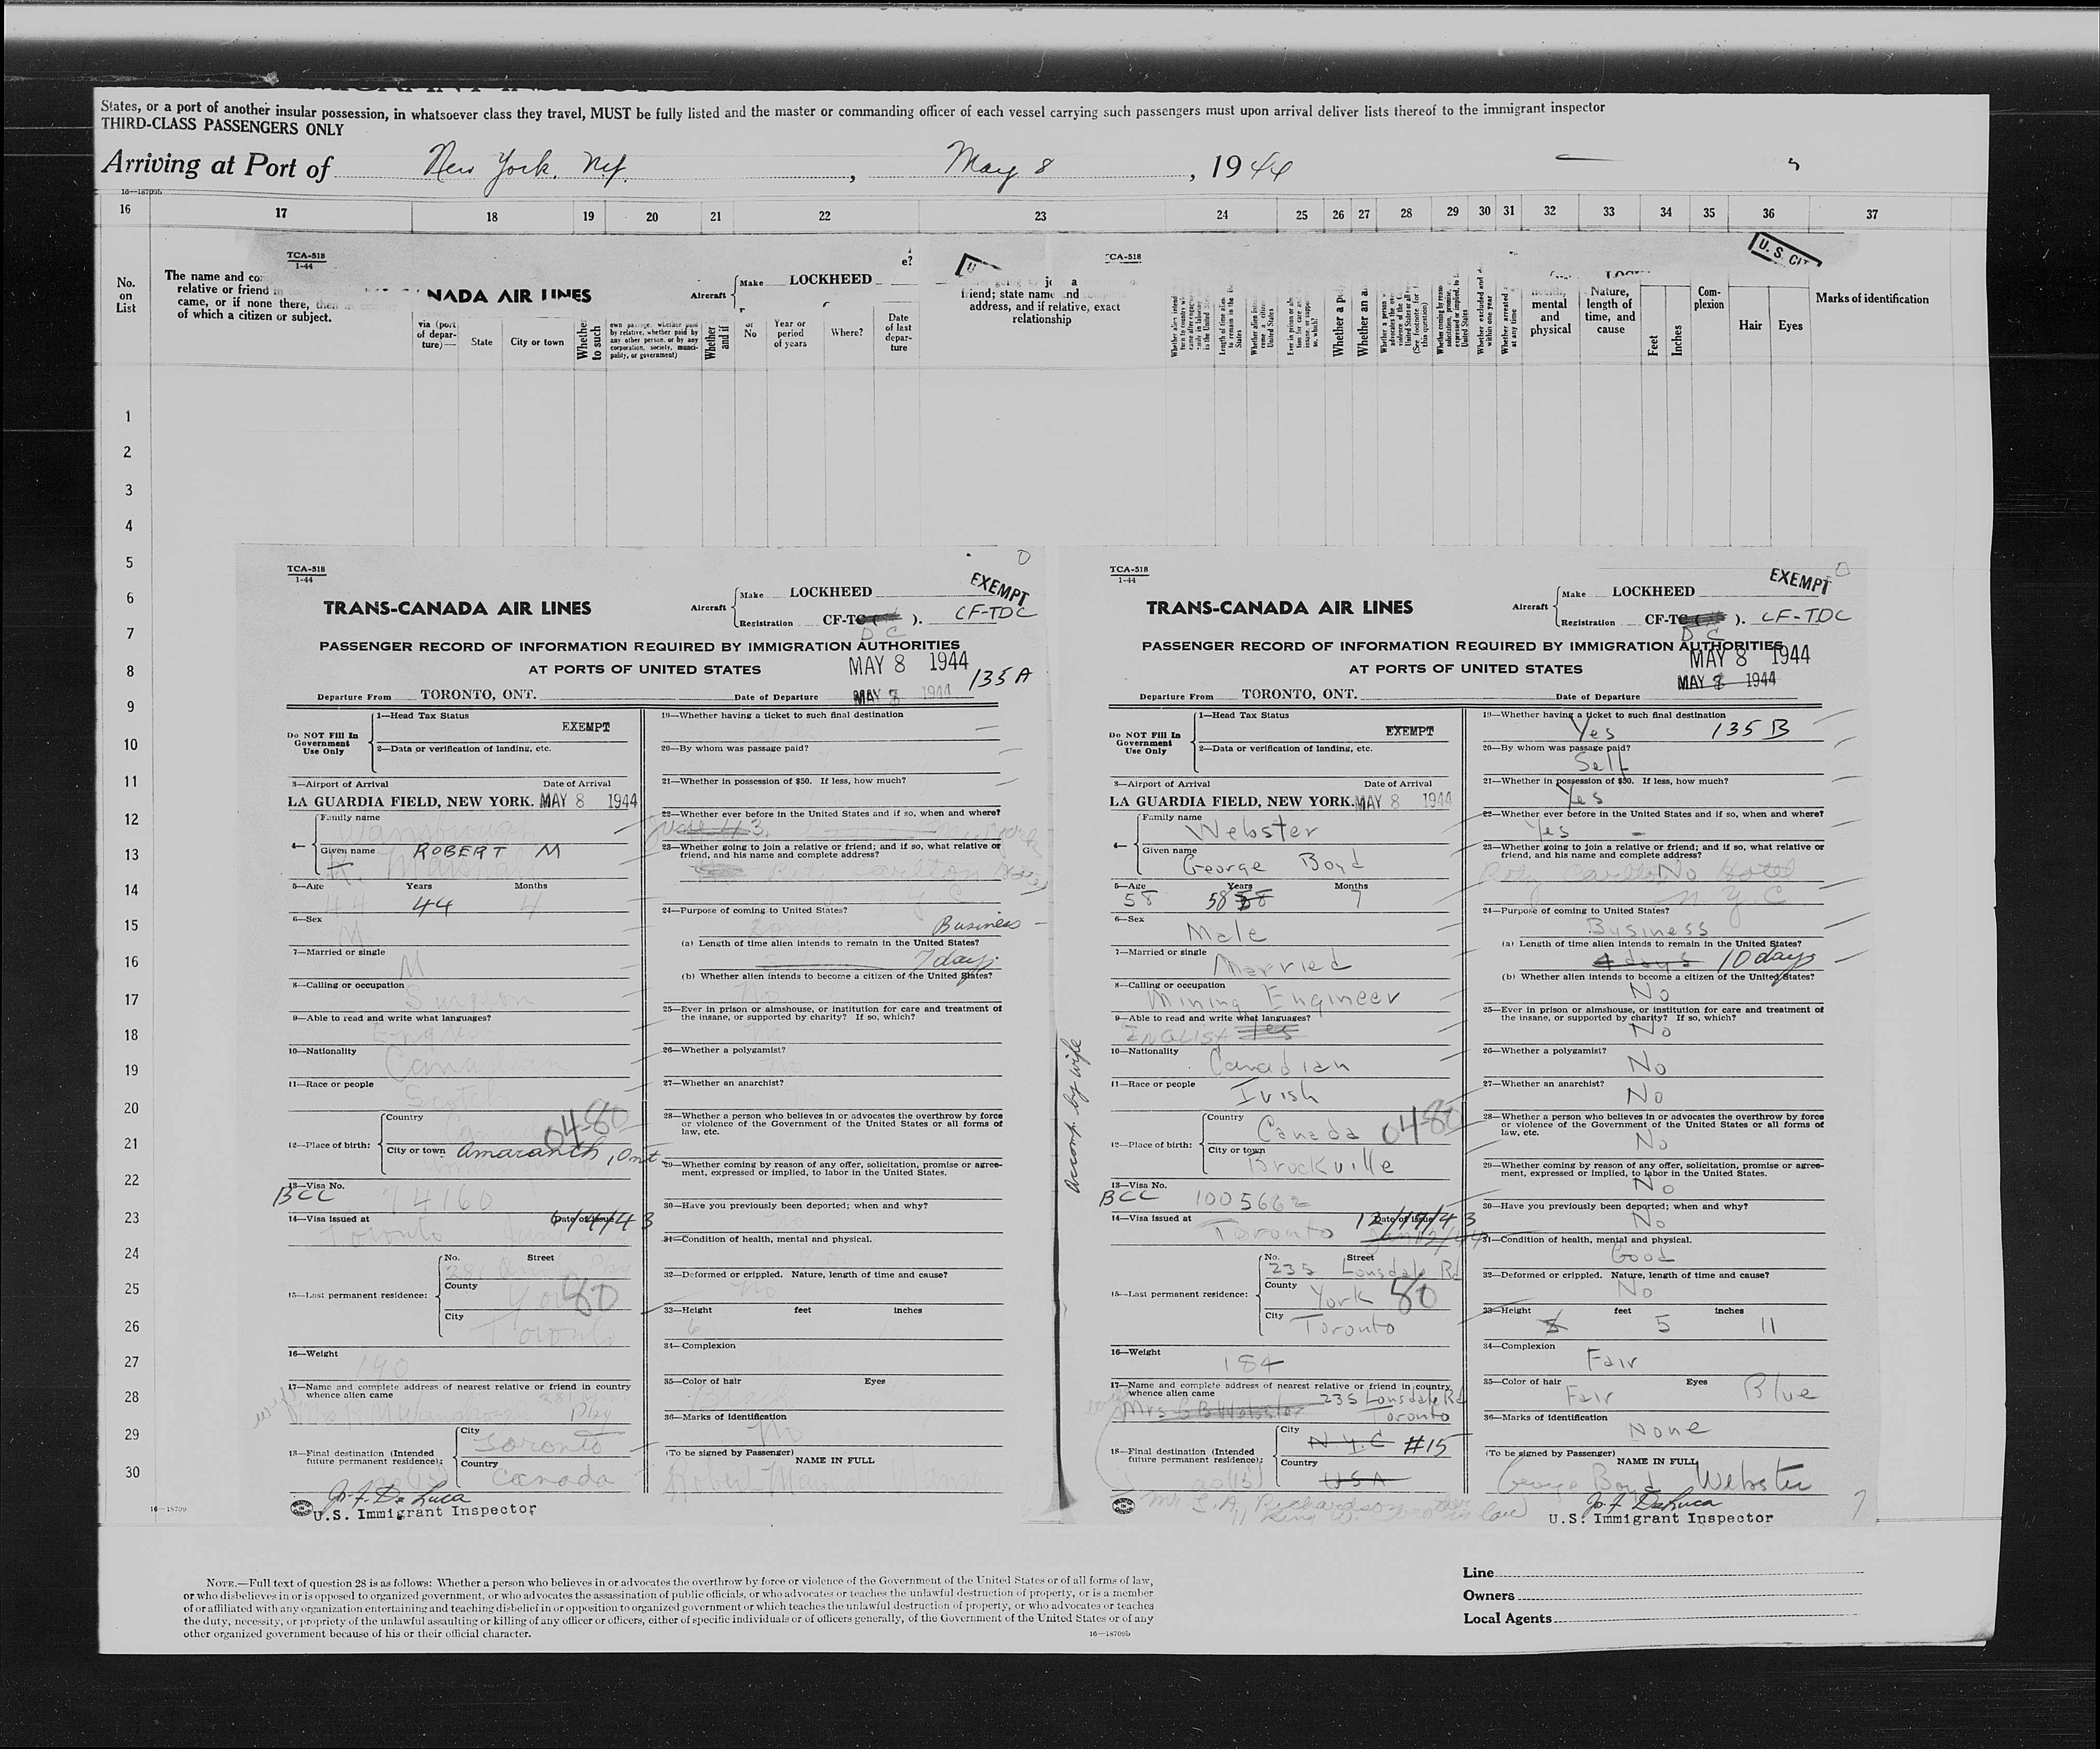 States, or a port of another insular possession, in whatsoever class they travel, MUST be fully listed and the master or commanding officer of each vessel carrying such passengers must upon arrival deliver lists thereof to the immigrant inspector
THIRD-CLASS PASSENGERS ONLY
Arriving at Port of New York, NY, May 8, 1944
16 17 18 19 20 21 22 23 24 25 26 27 28 29 30 31 32 33 34 35 36 37
TCA-518
1-44
TCA-518
U. S. CIT
No. on List
The name and
relative or friend in
came, or if none there, then
of which a citizen or subject.
NADA AIR LINES
Aircraft
Make LOCKHEED
via (port of depar-ture)—
State
City or town
Whether to such
own passage, whether paid by relative, whether paid by any other person, or by any corporation, society, munici-pality, or government)
Whether and if
or No
Year or period of years
Where?
Date of last depar-ture
friend; state name and
address, and if relative, exact
relationship
mental and physical
Nature, length of time, and cause
Feet
Inches
Com-plexion
Hair
Eyes
Marks of identification
1
2
3
4
5
6
7
8
9
10
11
12
13
14
15
16
17
18
19
20
21
22
23
24
25
26
27
28
29
30
TCA-518
1-44
EXEMPT
TRANS-CANADA AIR LINES
Aircraft
Make LOCKHEED
Registration CF-TC ( ). CF-TDC
DC
PASSENGER RECORD OF INFORMATION REQUIRED BY IMMIGRATION AUTHORITIES
AT PORTS OF UNITED STATES
MAY 8 1944
135A
Departure From TORONTO, ONT. Date of Departure MAY 8 1944
Do NOT Fill In Government Use Only
1—Head Tax Status EXEMPT
2—Data or verification of landing, etc.
3—Airport of Arrival Date of Arrival
LA GUARDIA FIELD, NEW YORK. MAY 8 1944
4— Family name
Given name ROBERT M
5—Age Years Months
44 44 4
6—Sex
M
7—Married or single
M
8—Calling or occupation
Surgeon
9—Able to read and write what languages?
English
10—Nationality
Canadian
11—Race or people
Scotch
12—Place of birth:
Country
Canada 04-80
City or town Amaranth, Ont
13—Visa No.
BCC 74160
14—Visa issued at Date of Issue
Toronto
15—Last permanent residence:
No. Street
County
York 80
City
Toronto
16—Weight
190
17—Name and complete address of nearest relative or friend in country
whence alien came
wife
18—Final destination (Intended future permanent residence):
City
Toronto
Country
Canada
Jo. F. DeLuca
U.S. Immigrant Inspector
19—Whether having a ticket to such final destination
20—By whom was passage paid?
21—Whether in possession of $50. If less, how much?
22—Whether ever before in the United States and if so, when and where?
23—Whether going to join a relative or friend; and if so, what relative or
friend, and his name and complete address?
Ritz Carlton Hotel
N Y C
24—Purpose of coming to United States?
Business
(a) Length of time alien intends to remain in the United States?
7 days
(b) Whether alien intends to become a citizen of the United States?
No
25—Ever in prison or almshouse, or institution for care and treatment of
the insane, or supported by charity? If so, which?
26—Whether a polygamist?
No
27—Whether an anarchist?
28—Whether a person who believes in or advocates the overthrow by force
or violence of the Government of the United States or all forms of
law, etc.
29—Whether coming by reason of any offer, solicitation, promise or agree-
ment, expressed or implied, to labor in the United States.
30—Have you previously been deported; when and why?
No
31—Condition of health, mental and physical.
32—Deformed or crippled. Nature, length of time and cause?
No
33—Height feet inches
6
34—Complexion
35—Color of hair Eyes
36—Marks of identification
No
(To be signed by Passenger) NAME IN FULL
Accomp. by wife
TCA-518
1-44
EXEMPT
TRANS-CANADA AIR LINES
Aircraft
Make LOCKHEED
Registration CF-TC ( ). CF-TDC
DC
PASSENGER RECORD OF INFORMATION REQUIRED BY IMMIGRATION AUTHORITIES
AT PORTS OF UNITED STATES
MAY 8 1944
Departure From TORONTO, ONT. Date of Departure MAY 8 1944
Do NOT Fill In Government Use Only
1—Head Tax Status EXEMPT
2—Data or verification of landing, etc.
3—Airport of Arrival Date of Arrival
LA GUARDIA FIELD, NEW YORK. MAY 8 1944
4— Family name
Webster
Given name
George Boyd
5—Age Years Months
58 58 58 7
6—Sex
Male
7—Married or single
Married
8—Calling or occupation
Mining Engineer
9—Able to read and write what languages?
ENGLISH Yes
10—Nationality
Canadian
11—Race or people
Irish
12—Place of birth:
Country
Canada 04-80
City or town
Brockville
13—Visa No.
BCC 1005662
14—Visa issued at Date of Issue
Toronto 12/17/43
15—Last permanent residence:
No. Street
235 Lonsdale Rd
County
York 80
City
Toronto
16—Weight
184
17—Name and complete address of nearest relative or friend in country
whence alien came 235 Lonsdale Rd
Mrs G B Webster Toronto
18—Final destination (Intended future permanent residence):
City
N.Y.C #15
Country
USA
Mr. L. A. Richardson
King W. law
19—Whether having a ticket to such final destination
Yes 135 B
20—By whom was passage paid?
Self
21—Whether in possession of $50. If less, how much?
Yes
22—Whether ever before in the United States and if so, when and where?
Yes –
23—Whether going to join a relative or friend; and if so, what relative or
friend, and his name and complete address?
Ritz Carlton No Hotel
N. Y. C
24—Purpose of coming to United States?
Business
(a) Length of time alien intends to remain in the United States?
4 days 10 days
(b) Whether alien intends to become a citizen of the United States?
No
25—Ever in prison or almshouse, or institution for care and treatment of
the insane, or supported by charity? If so, which?
No
26—Whether a polygamist?
No
27—Whether an anarchist?
No
28—Whether a person who believes in or advocates the overthrow by force
or violence of the Government of the United States or all forms of
law, etc.
No
29—Whether coming by reason of any offer, solicitation, promise or agree-
ment, expressed or implied, to labor in the United States.
No
30—Have you previously been deported; when and why?
No
31—Condition of health, mental and physical.
Good
32—Deformed or crippled. Nature, length of time and cause?
No
33—Height feet inches
5 11
34—Complexion
Fair
35—Color of hair Eyes
Fair Blue
36—Marks of identification
None
(To be signed by Passenger) NAME IN FULL
George Boyd Webster
Jo. F. DeLuca
U.S. Immigrant Inspector
16—18709
NOTE.—Full text of question 28 is as follows: Whether a person who believes in or advocates the overthrow by force or violence of the Government of the United States or of all forms of law,
or who disbelieves in or is opposed to organized government, or who advocates the assassination of public officials, or who advocates or teaches the unlawful destruction of property, or is a member
of or affiliated with any organization entertaining and teaching disbelief in or opposition to organized government or which teaches the unlawful destruction of property, or who advocates or teaches
the duty, necessity, or propriety of the unlawful assaulting or killing of any officer or officers, either of specific individuals or of officers generally, of the Government of the United States or of any
other organized government because of his or their official character.
16—18709b
Line
Owners
Local Agents